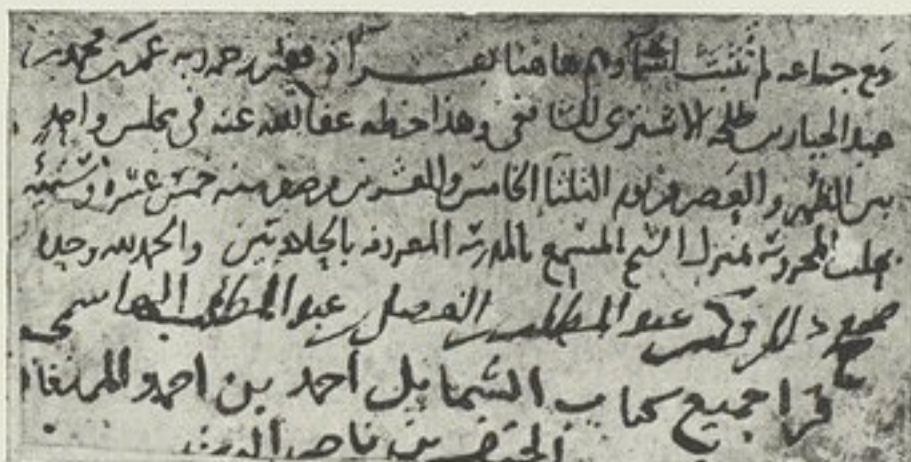 مع جماعه لم تثبت اسماوهم هاهنا بقراة فقير رحمة ربه عمر بن محمد بن
عبد الجبار بن طلحه الاشتري الشافعي وهذا خطه عفا الله عنه في مجلس واحد
بين الظهر والعصر من يوم الثلثا الخامس والعشرين من صفر سنه خمس عشره وستميه
بحلب المحروسة بمنزل الشيخ المسمع بالمدرسه المعروفه بالحلاويين والحمد لله وحده
صحيح ذلك وكتب عبد المطلب بن الفضل بن عبد المطلب الهاشمي
قرا جميع كتاب الشمايل احمد بن احمد
بن ناصر الدين